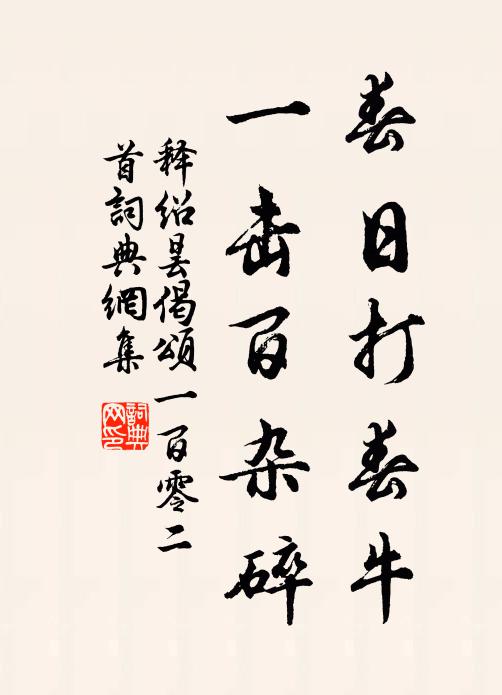 春日打春牛
一击百杂碎
释绍昙偈頌一百零二
首詞典網集
詞典
网印